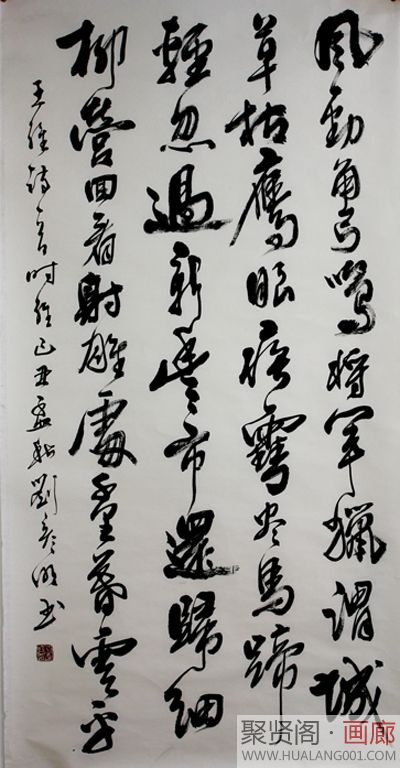 風勁角弓鳴將軍獵渭城
草枯鷹眼疾雪尽馬蹄
輕忽過新豐市還歸細
柳營回看射雕處千里暮雲平
王維詩一首时維己丑孟秋劉书
聚贤阁·画廊
WWW.HUALANG001.COM